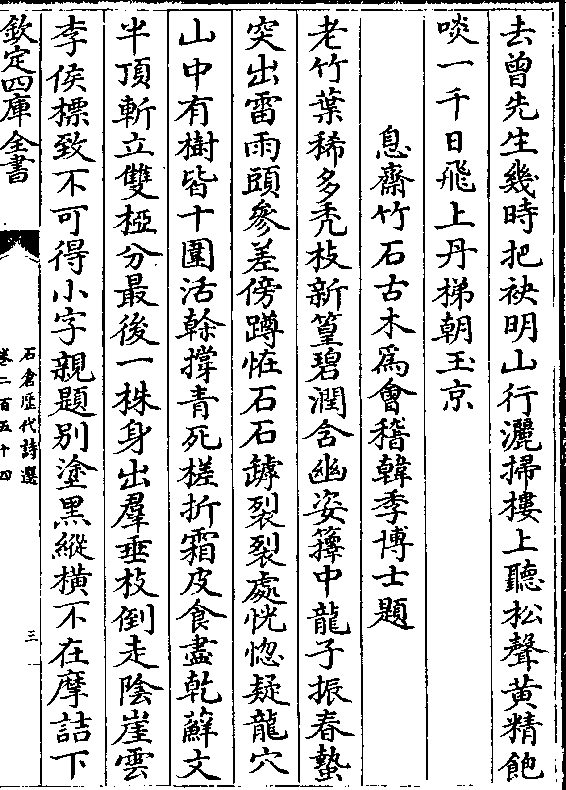 去曽先生幾時把袂明山行灑掃樓上聽松聲黄精飽
啖一千日飛上丹梯朝玉京
息齋竹石古木為會稽韓季博士題
老竹葉稀多秃枝新篁碧潤含幽姿籜中龍子振春蟄
突出雷雨頭參差傍蹲怪石石罅裂裂處恍惚疑龍穴
山中有樹皆十圍活榦撑青死槎折霜皮食盡乾蘚文
半頂斬立雙椏分最後一株身出羣垂枝倒走陰崖雲
李侯標致不可得小字親題别塗黒縱横不在摩詰下
欽定四庫全書
石倉歴代詩選
卷二百五十四
三